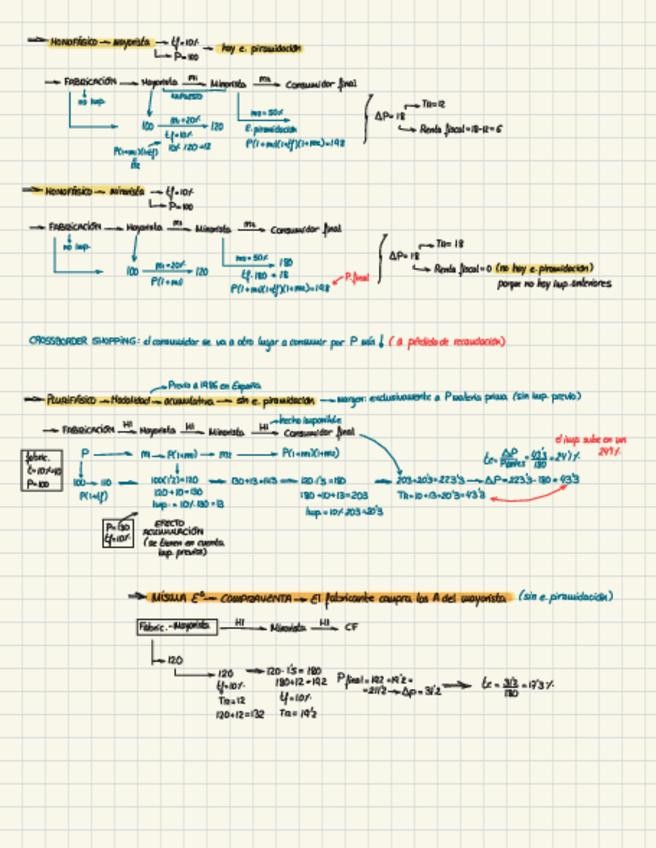 ⇒ MONOFÁSICO — mayorista → tf=10%
→ P=100
→ hay e. piramidación
→ FABRICACIÓN → Mayorista —m1→ Minorista —m2→ Consumidor final
no imp.
IMPUESTO
100 —m1=20%→ 120
tf=10%
10% 120=12
P(1+m1)(1+tf)
m2=50%
E. piramidación
P(1+m1)(1+tf)(1+m2)=198
ΔP=18
→ Ta=12
→ Renta fiscal=18-12=6
⇒ MONOFÁSICO — minorista → tf=10%
→ P=100
→ FABRICACIÓN → Mayorista —m1→ Minorista —m2→ Consumidor final
no imp.
100 —m1=20%→ 120
P(1+m1)
m2=50% → 180
tf·180=18
P(1+m1)(1+tf)(1+m2)=198 ← P.final
ΔP=18
→ Ta=18
→ Renta fiscal=0 (no hay e. piramidación)
porque no hay imp. anteriores
CROSSBORDER SHOPPING: el consumidor se va a otro lugar a consumir por P más ↓ (a pérdida de recaudación)
Previo a 1986 en España
⇒ PLURIFÁSICO — Modalidad — acumulativa — sin e. piramidación — margen: exclusivamente a P materia prima (sin imp. previo)
hecho imponible
→ FABRICACIÓN —HI→ Mayorista —HI→ Minorista —HI→ Consumidor final
el imp. sube en un
24'1%
fabric.
t=10%
P=100
P → m → P(1+m1) → m2 → P(1+m1)(1+m2)
te= ΔP/Pantes = 43'3/180 = 24'1%
100 — 110
P(1+tf)
100(1'2)=120
120+10=130
Imp = 10%·130=13
130+13=143
120·1'5=180
180+10+13=203
Imp=10% 203=20'3
203+20'3=223'3 → ΔP=223'3-180=43'3
Ta=10+13+20'3=43'3
P=130
tf=10%
EFECTO
ACUMULACIÓN
(se tienen en cuenta
imp. previos)
⇒ MISMA Eª — COMPRAVENTA → El fabricante compra las A del mayorista (sin e. piramidación)
Fabric.-Mayorista —HI→ Minorista —HI→ CF
→ 120
→ 120
tf=10%
Ta=12
120+12=132
→ 120·1'5=180
180+12=192
tf=10%
Ta=19'2
P final=192+19'2=
=211'2 → Δp=31'2
⇒ te= 31'2/180 = 17'3%